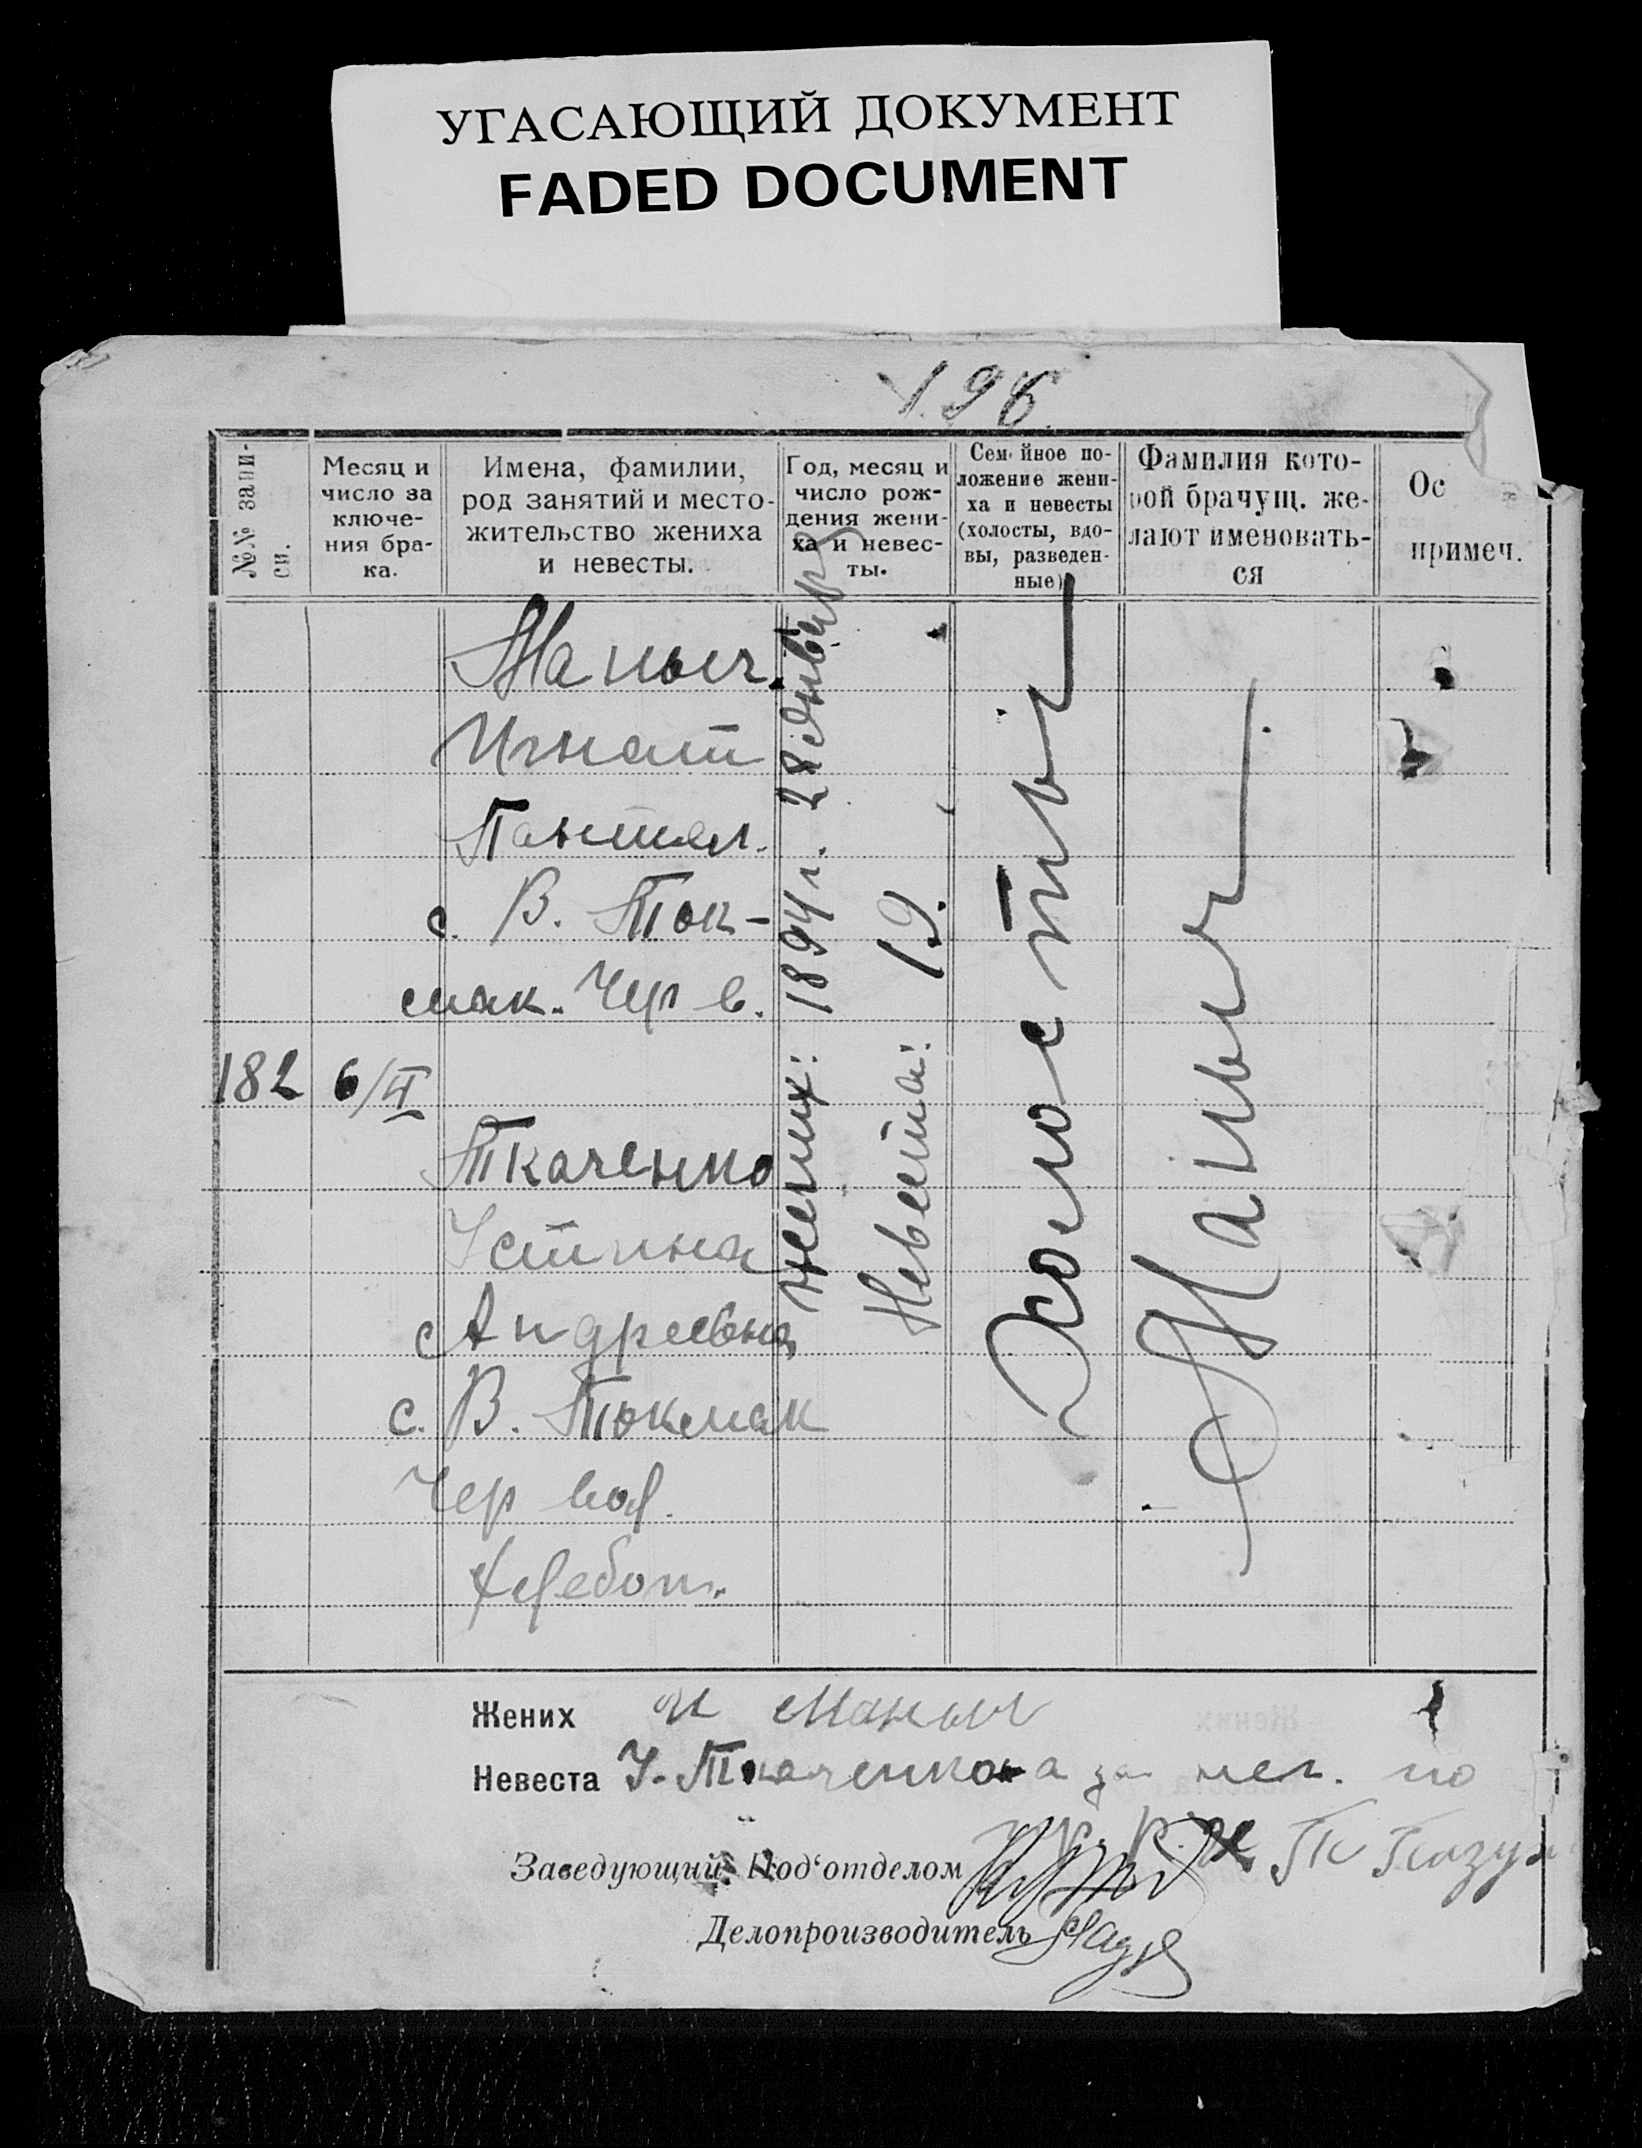 УГАСАЮЩИЙ ДОКУМЕНТ
FADED DOCUMENT
196
№№ запи-
си.
Месяц и
число за
ключе-
ния бра-
ка.
Имена, фамилии,
род занятий и место-
жительство жениха
и невесты.
Год, месяц и
число рож-
дения жени-
ха и невес-
ты.
Семейное по-
ложение жени-
ха и невесты
(холосты, вдо-
вы, разведен-
ные)
Фамилия кото-
рой брачущ. же-
лают именовать-
ся
Ос
примеч.
Маныч.
Игнат
Пантел.
с. В. Ток-
мак. Чер в.
182 6/II
Ткаченко
Устина
Андреевна
с. В. Токмак
Чер вол.
хлебоп.
жених: 1894 г. 28 Январ
Невеста: 19.
Холосты
Маныч
Жених И Маныч
Невеста У. Ткаченкова за нег. по
Заведующий Под'отделом
Делопроизводитель